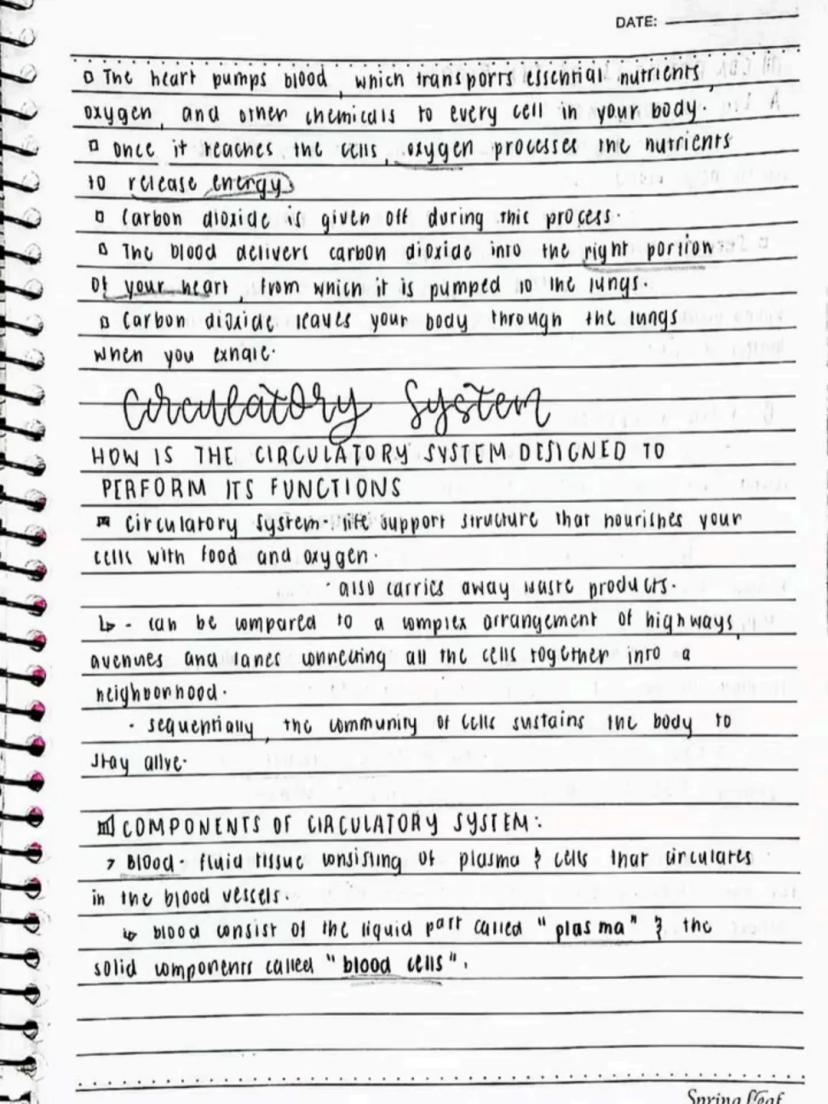 DATE:
▫ The heart pumps blood, which transports essential nutrients,
oxygen, and other chemicals to every cell in your body.
▫ Once it reaches the cells, oxygen processes the nutrients
to release energy
▫ Carbon dioxide is given off during this process.
▫ The blood delivers carbon dioxide into the right portion
of your heart, from which it is pumped to the lungs.
▫ Carbon dioxide leaves your body through the lungs
when you exhale.
Circulatory System
HOW IS THE CIRCULATORY SYSTEM DESIGNED TO
PERFORM ITS FUNCTIONS
Circulatory System - life support structure that nourishes your
cells with food and oxygen.
· also carries away waste products.
↳ - can be compared to a complex arrangement of highways,
avenues and lanes connecting all the cells together into a
neighborhood.
· sequentially, the community of cells sustains the body to
stay alive.
COMPONENTS OF CIRCULATORY SYSTEM:
> Blood - fluid tissue consisting of plasma & cells that circulates
in the blood vessels.
↳ blood consist of the liquid part called "plasma" & the
solid components called "blood cells".
Spring Leaf